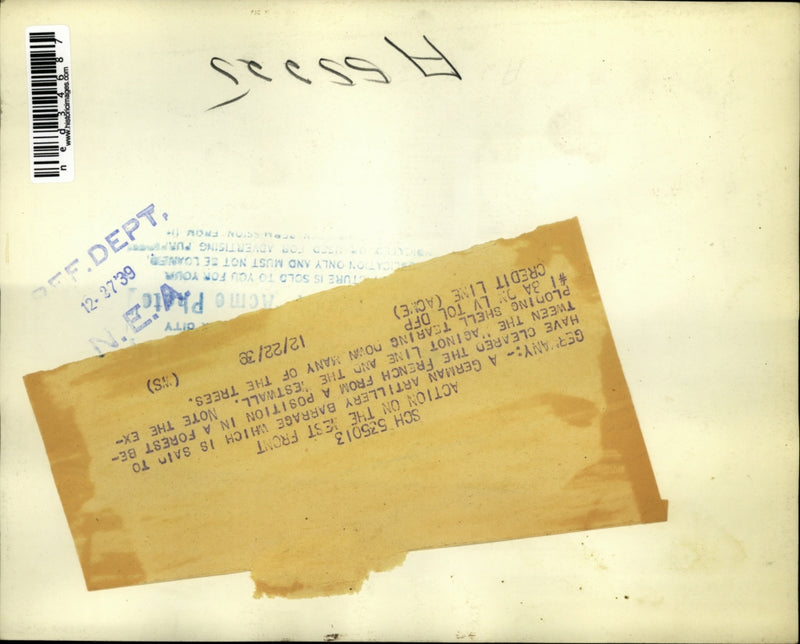 ned34687
www.historicimages.com
REF. DEPT.
12-27'39
N.E.A.
CITY
Acme
TURE IS SOLD TO YOU FOR YOUR
ICATION ONLY AND MUST NOT BE LOANED,
OR USED FOR ADVERTISING
PERMISSION FROM
SCH 535013
ACTION ON THE WEST FRONT
GERMANY:- A GERMAN ARTILLERY BARRAGE WHICH IS SAID TO
HAVE CLEARED THE FRENCH FROM A POSITION IN A FOREST BE-
TWEEN THE MAGINOT LINE AND THE WESTWALL. NOTE THE EX-
PLODING SHELL TEARING DOWN MANY OF THE TREES.
#1 BA ON LV TOL DFP
CREDIT LINE (ACME) 12/22/39 (WS)